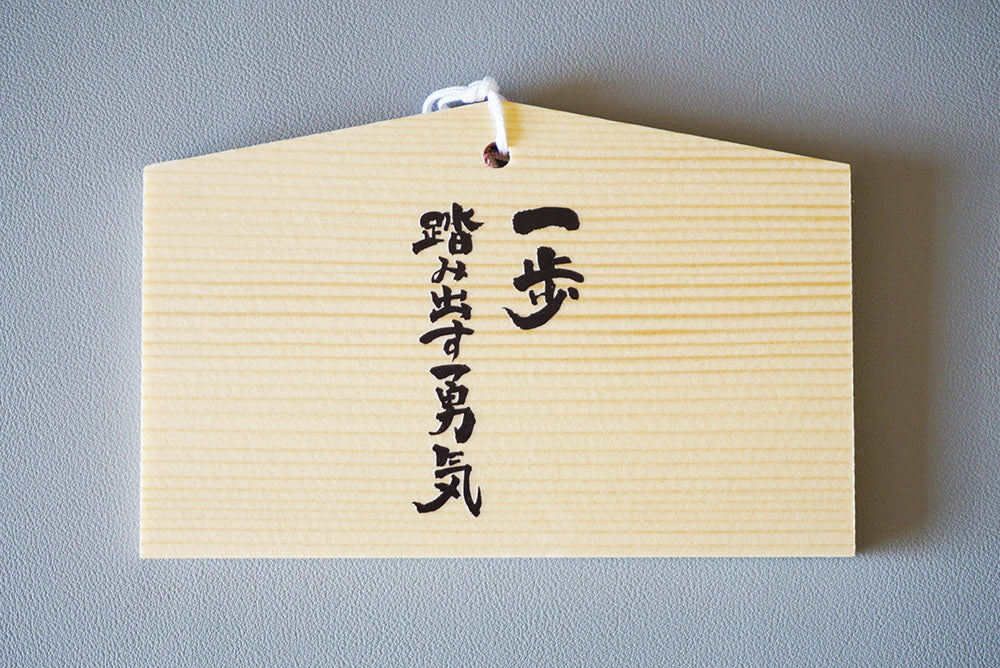 一歩
踏み出す勇気